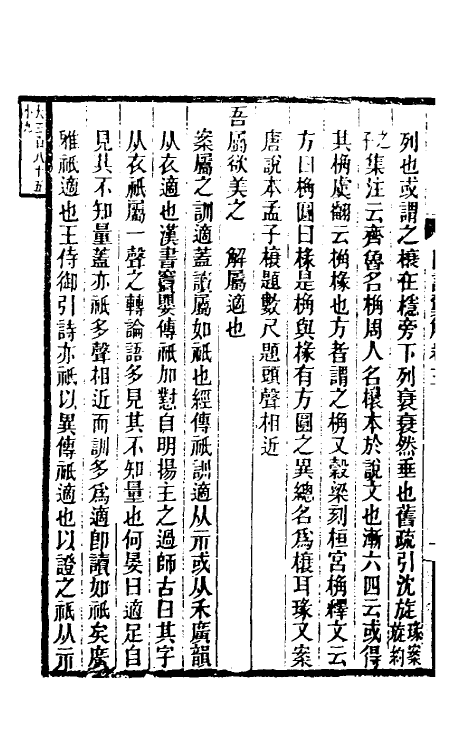 列也或謂之榱在檼旁下列衰衰然垂也舊疏引沈旋琢案旋約
之子集注云齊魯名桷周人名榱本於說文也漸六四云或得
其桷虞翻云桷椽也方者謂之桷又穀梁刻桓宮桷釋文云
方曰桷圓曰椽是桷與椽有方圓之異總名為榱耳瑑又案
唐說本孟子榱題數尺題頭聲相近
吾屬欲美之　解屬適也
案屬之訓適蓋讀屬如祇也經傳祇訓適从示或从禾廣韻
从衣適也漢書竇嬰傳祇加懟自明揚主之過師古曰其字
从衣祇屬一聲之轉論語多見其不知量也何晏曰適足自
見其不知量蓋亦祇多聲相近而訓多為適卽讀如祇矣廣
雅祇適也王侍御引詩亦祇以異傳祇適也以證之祇从示
大三百八十五
小九